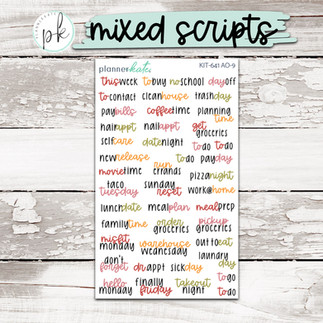 pk
mixed scripts
plannerkate
KIT-641 AO-9
thisweek tobuy noschool dayoff
tocontact cleanhouse trashday
paybills coffeetime planning time
hairappt nailappt get groceries
selfcare datenight todo todo
newrelease run errands todo payday
movietime sunday pizzanight
taco tuesday reset workhome
lunchdate mealplan mealprep
familytime order groceries pickup groceries
misfit monday warehouse wednesday out to eat
don't forget laundry day
drappt sickday togo
hello monday finally friday takeout night todo